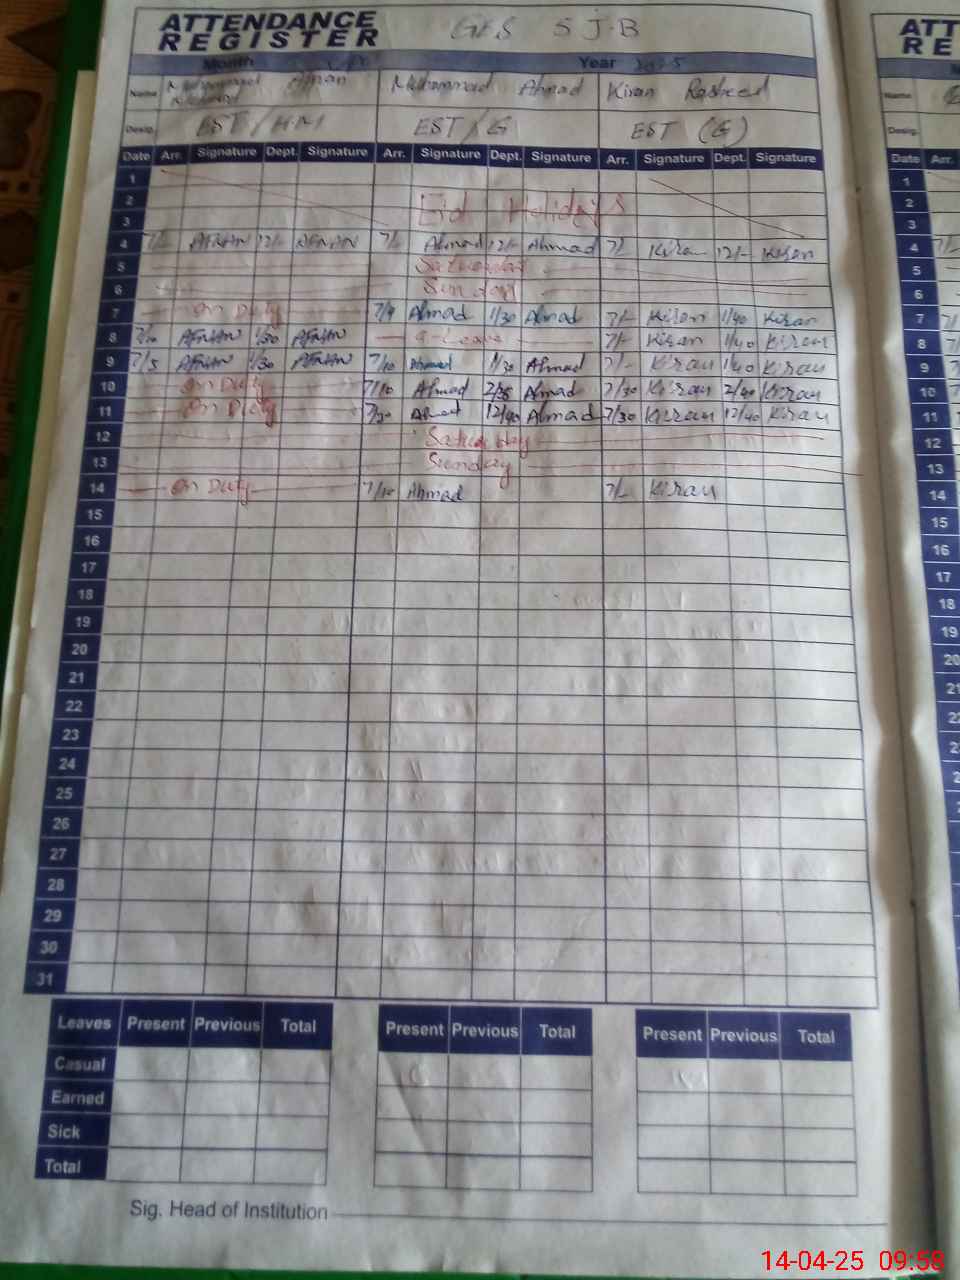 ATTENDANCE REGISTER
GES SJB
Month Year 2025
Name Muhammad Afnan Muhammad Ahmad Kiran Rasheed
Desig. EST/HM EST/G EST (G)
Date Arr. Signature Dept. Signature Arr. Signature Dept. Signature Arr. Signature Dept. Signature
1
2 Eid Holidays
3
4 7/- AFNAN 12/- AFNAN 7/- Ahmad 12/- Ahmad 7/- Kiran 12/- Kiran
5 Saturday
6 Sunday
7 On Duty 7/9 Ahmad 1/30 Ahmad 7/- Kiran 1/40 Kiran
8 7/10 AFNAN 1/30 AFNAN Leave 7/- Kiran 1/40 Kiran
9 7/5 AFNAN 1/30 AFNAN 7/10 Ahmad 1/30 Ahmad 7/- Kiran 1/40 Kiran
10 On Duty 7/10 Ahmad Ahmad 7/30 Kiran 2/40 Kiran
11 On Duty 7/30 Ahmad 12/40 Ahmad 7/30 Kiran 12/40 Kiran
12 Saturday
13 Sunday
14 On Duty 7/10 Ahmad 7/- Kiran
15
16
17
18
19
20
21
22
23
24
25
26
27
28
29
30
31
Leaves Present Previous Total Present Previous Total Present Previous Total
Casual
Earned
Sick
Total
Sig. Head of Institution
ATT
RE
Name
Desig.
Date Arr.
1
2
3
4 7/-
5
6
7
8
9
10
11
12
13
14
15
16
17
18
19
20
21
22
14-04-25 09:58